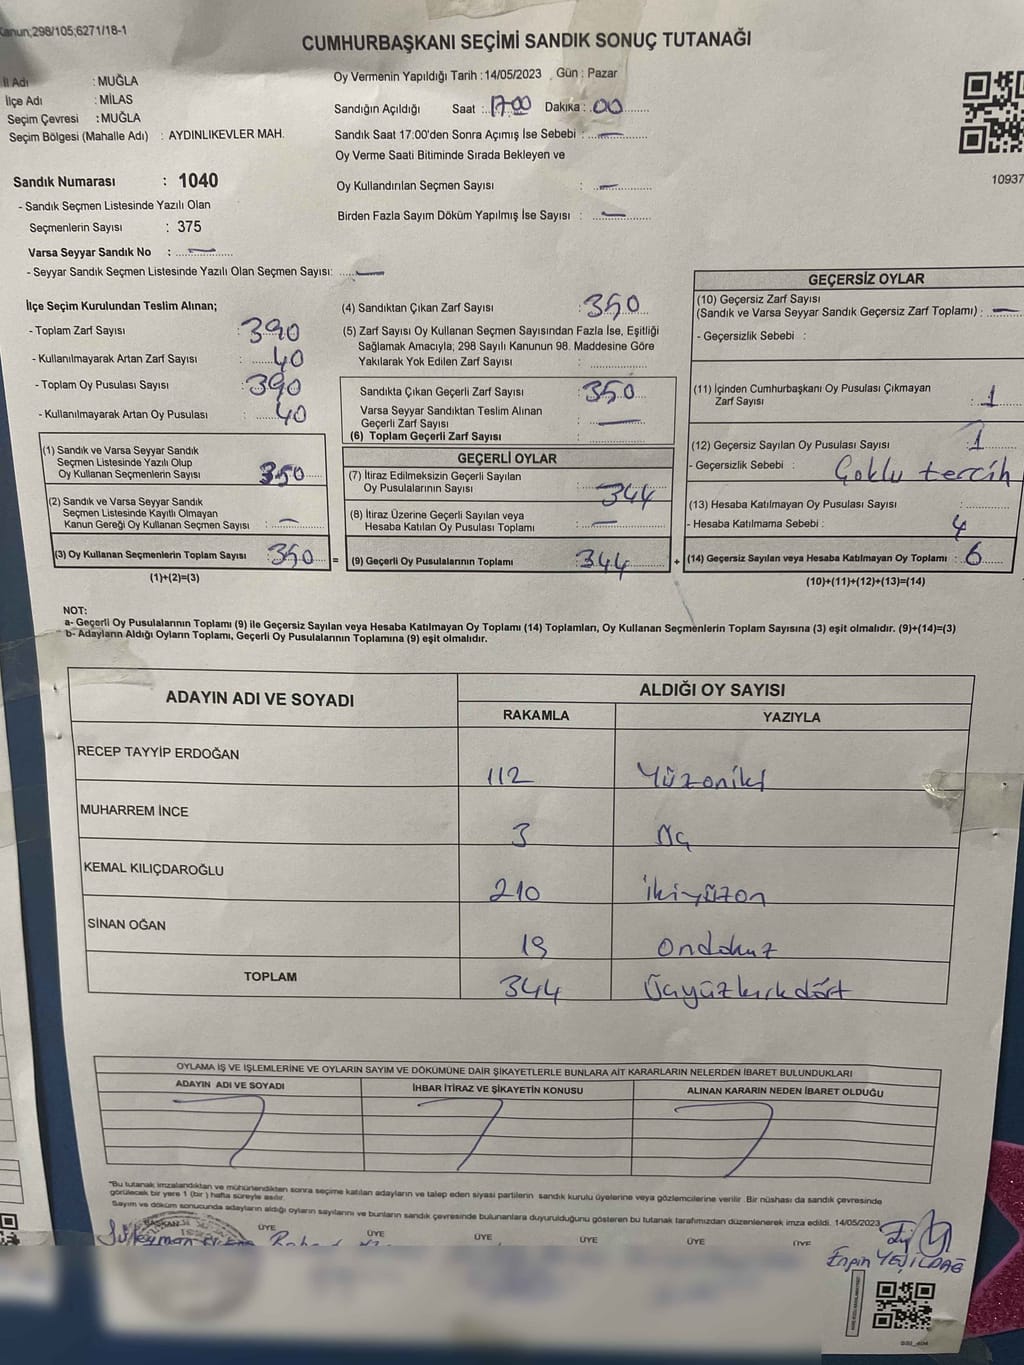 Kanun;298/105;6271/18-1
CUMHURBAŞKANI SEÇİMİ SANDIK SONUÇ TUTANAĞI
İl Adı : MUĞLA
İlçe Adı : MİLAS
Seçim Çevresi : MUĞLA
Seçim Bölgesi (Mahalle Adı) : AYDINLIKEVLER MAH.
Sandık Numarası : 1040
- Sandık Seçmen Listesinde Yazılı Olan
Seçmenlerin Sayısı : 375
Varsa Seyyar Sandık No : —
- Seyyar Sandık Seçmen Listesinde Yazılı Olan Seçmen Sayısı: —
Oy Vermenin Yapıldığı Tarih : 14/05/2023 , Gün : Pazar
Sandığın Açıldığı Saat : 17:00 Dakika : 00
Sandık Saat 17:00'den Sonra Açımış İse Sebebi : —
Oy Verme Saati Bitiminde Sırada Bekleyen ve
Oy Kullandırılan Seçmen Sayısı : —
Birden Fazla Sayım Döküm Yapılmış İse Sayısı : —
10937
İlçe Seçim Kurulundan Teslim Alınan;
- Toplam Zarf Sayısı : 390
- Kullanılmayarak Artan Zarf Sayısı : 40
- Toplam Oy Pusulası Sayısı : 390
- Kullanılmayarak Artan Oy Pusulası : 40
(1) Sandık ve Varsa Seyyar Sandık
Seçmen Listesinde Yazılı Olup
Oy Kullanan Seçmenlerin Sayısı 350
(2) Sandık ve Varsa Seyyar Sandık
Seçmen Listesinde Kayıtlı Olmayan
Kanun Gereği Oy Kullanan Seçmen Sayısı : —
(3) Oy Kullanan Seçmenlerin Toplam Sayısı : 350 =
(1)+(2)=(3)
(4) Sandıktan Çıkan Zarf Sayısı : 350
(5) Zarf Sayısı Oy Kullanan Seçmen Sayısından Fazla İse, Eşitliği
Sağlamak Amacıyla; 298 Sayılı Kanunun 98. Maddesine Göre
Yakılarak Yok Edilen Zarf Sayısı :
Sandıkta Çıkan Geçerli Zarf Sayısı : 350
Varsa Seyyar Sandıktan Teslim Alınan
Geçerli Zarf Sayısı : —
(6) Toplam Geçerli Zarf Sayısı :
GEÇERLİ OYLAR
(7) İtiraz Edilmeksizin Geçerli Sayılan
Oy Pusulalarının Sayısı : 344
(8) İtiraz Üzerine Geçerli Sayılan veya
Hesaba Katılan Oy Pusulası Toplamı : —
(9) Geçerli Oy Pusulalarının Toplamı : 344 +
GEÇERSİZ OYLAR
(10) Geçersiz Zarf Sayısı
(Sandık ve Varsa Seyyar Sandık Geçersiz Zarf Toplamı) : —
- Geçersizlik Sebebi :
(11) İçinden Cumhurbaşkanı Oy Pusulası Çıkmayan
Zarf Sayısı : 1
(12) Geçersiz Sayılan Oy Pusulası Sayısı : 1
- Geçersizlik Sebebi : Çoklu tercih
(13) Hesaba Katılmayan Oy Pusulası Sayısı :
- Hesaba Katılmama Sebebi : 4
(14) Geçersiz Sayılan veya Hesaba Katılmayan Oy Toplamı : 6
(10)+(11)+(12)+(13)=(14)
NOT:
a- Geçerli Oy Pusulalarının Toplamı (9) ile Geçersiz Sayılan veya Hesaba Katılmayan Oy Toplamı (14) Toplamları, Oy Kullanan Seçmenlerin Toplam Sayısına (3) eşit olmalıdır. (9)+(14)=(3)
b- Adayların Aldığı Oyların Toplamı, Geçerli Oy Pusulalarının Toplamına (9) eşit olmalıdır.
ADAYIN ADI VE SOYADI ALDIĞI OY SAYISI
RAKAMLA YAZIYLA
RECEP TAYYİP ERDOĞAN 112 Yüzoniki
MUHARREM İNCE 3 Üç
KEMAL KILIÇDAROĞLU 210 İkiyüzon
SİNAN OĞAN 19 Ondokuz
TOPLAM 344 Üçyüzkırkdört
OYLAMA İŞ VE İŞLEMLERİNE VE OYLARIN SAYIM VE DÖKÜMÜNE DAİR ŞİKAYETLERLE BUNLARA AİT KARARLARIN NELERDEN İBARET BULUNDUKLARI
ADAYIN ADI VE SOYADI İHBAR İTİRAZ VE ŞİKAYETİN KONUSU ALINAN KARARIN NEDEN İBARET OLDUĞU
"Bu tutanak imzalandıktan ve mühürlendikten sonra seçime katılan adayların ve talep eden siyasi partilerin sandık kurulu üyelerine veya gözlemcilerine verilir. Bir nüshası da sandık çevresinde
görülecek bir yere 1 (bir) hafta süreyle asılır.
Sayım ve döküm sonucunda adayların aldığı oyların sayılarını ve bunların sandık çevresinde bulunanlara duyurulduğunu gösteren bu tutanak tarafımızdan düzenlenerek imza edildi. 14/05/2023
BAŞKAN ÜYE ÜYE ÜYE ÜYE ÜYE ÜYE
Süleyman
Engin YEŞİLDAĞ